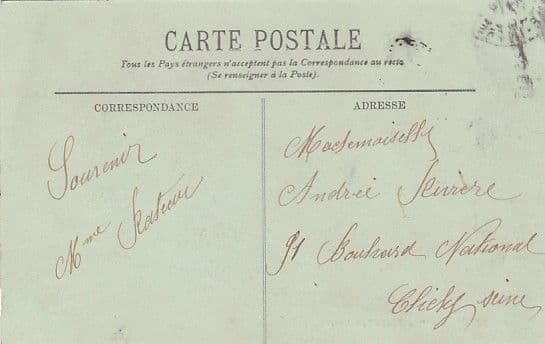 CARTE POSTALE
Tous les Pays étrangers n'acceptent pas la Correspondance au recto
(Se renseigner à la Poste).
CORRESPONDANCE
Souvenir
Mme
ADRESSE
Mademoiselle
Andrée
91 Boulevard National
Clichy Seine